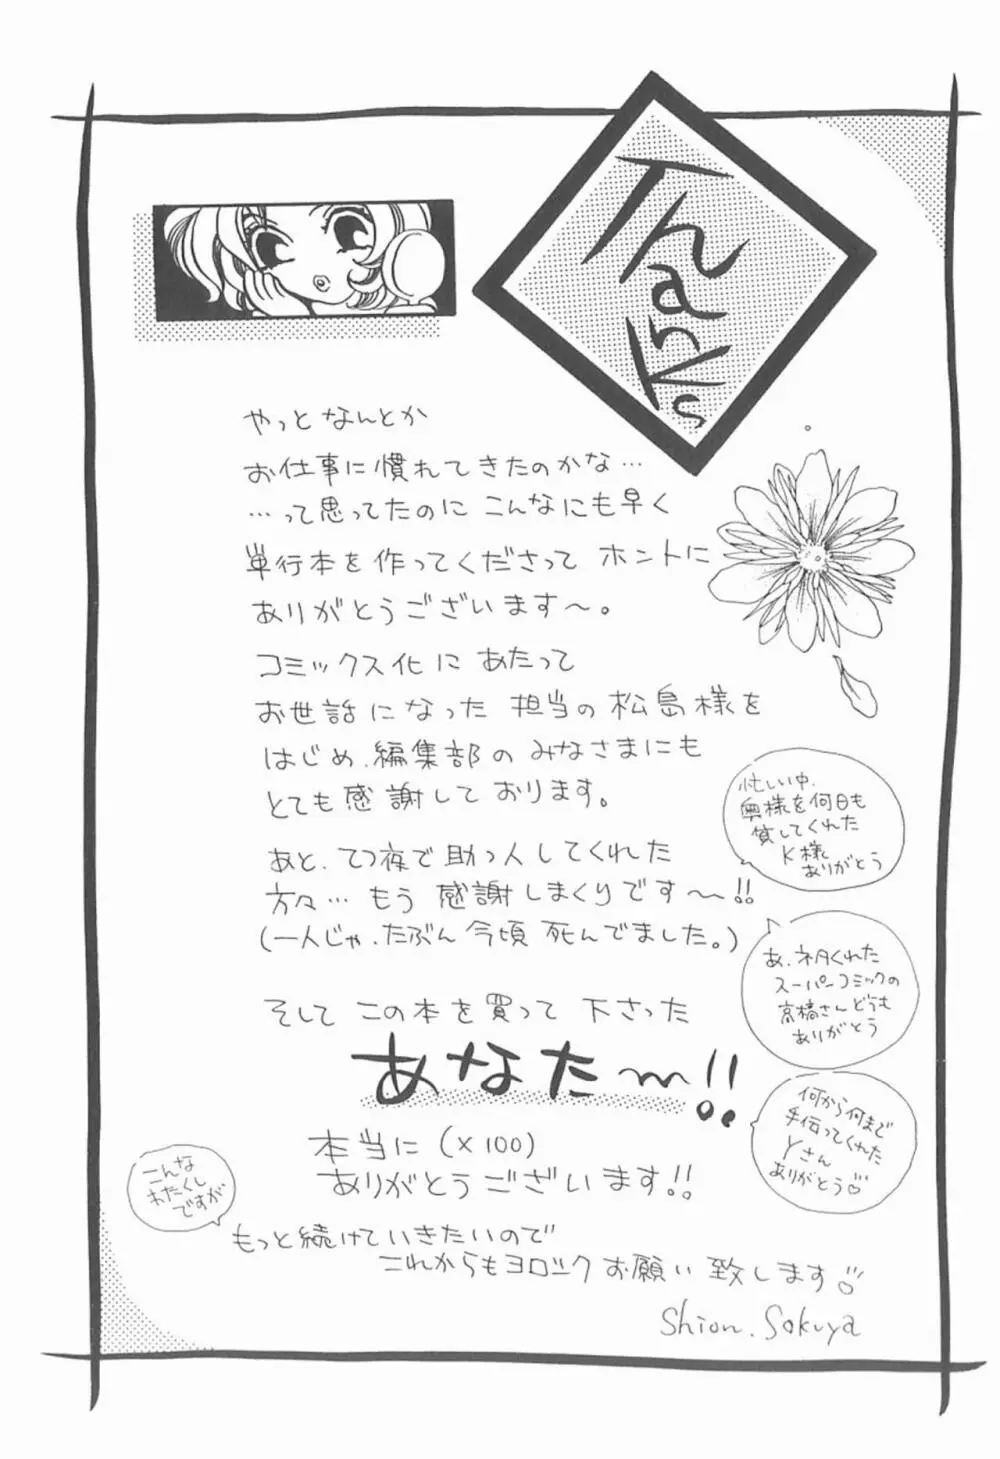 Thanks
やっとなんとか
お仕事に慣れてきたのかな…
…って思ってたのに こんなにも早く
単行本を作ってくださって ホントに
ありがとうございます〜。
コミックス化に あたって
お世話になった 担当の松島様を
はじめ、編集部の みなさまにも
とても感謝して おります。
あと、てつ夜で助っ人してくれた
方々… もう 感謝しまくりです〜!!
(一人じゃ、たぶん今頃 死んでました。)
忙しい中、
奥様を何日も
貸してくれた
K様
ありがとう
あ、ネタくれた
スーパーコミックの
高橋さんどうも
ありがとう
何から何まで
手伝ってくれた
Yさん
ありがとう♡
そして この本を買って 下さった
あなた〜!!
本当に (×100)
ありがとうございます!!
こんな
わたくし
ですが
もっと続けていきたいので
これからもヨロシク お願い致します♡
Shion. Sakuya